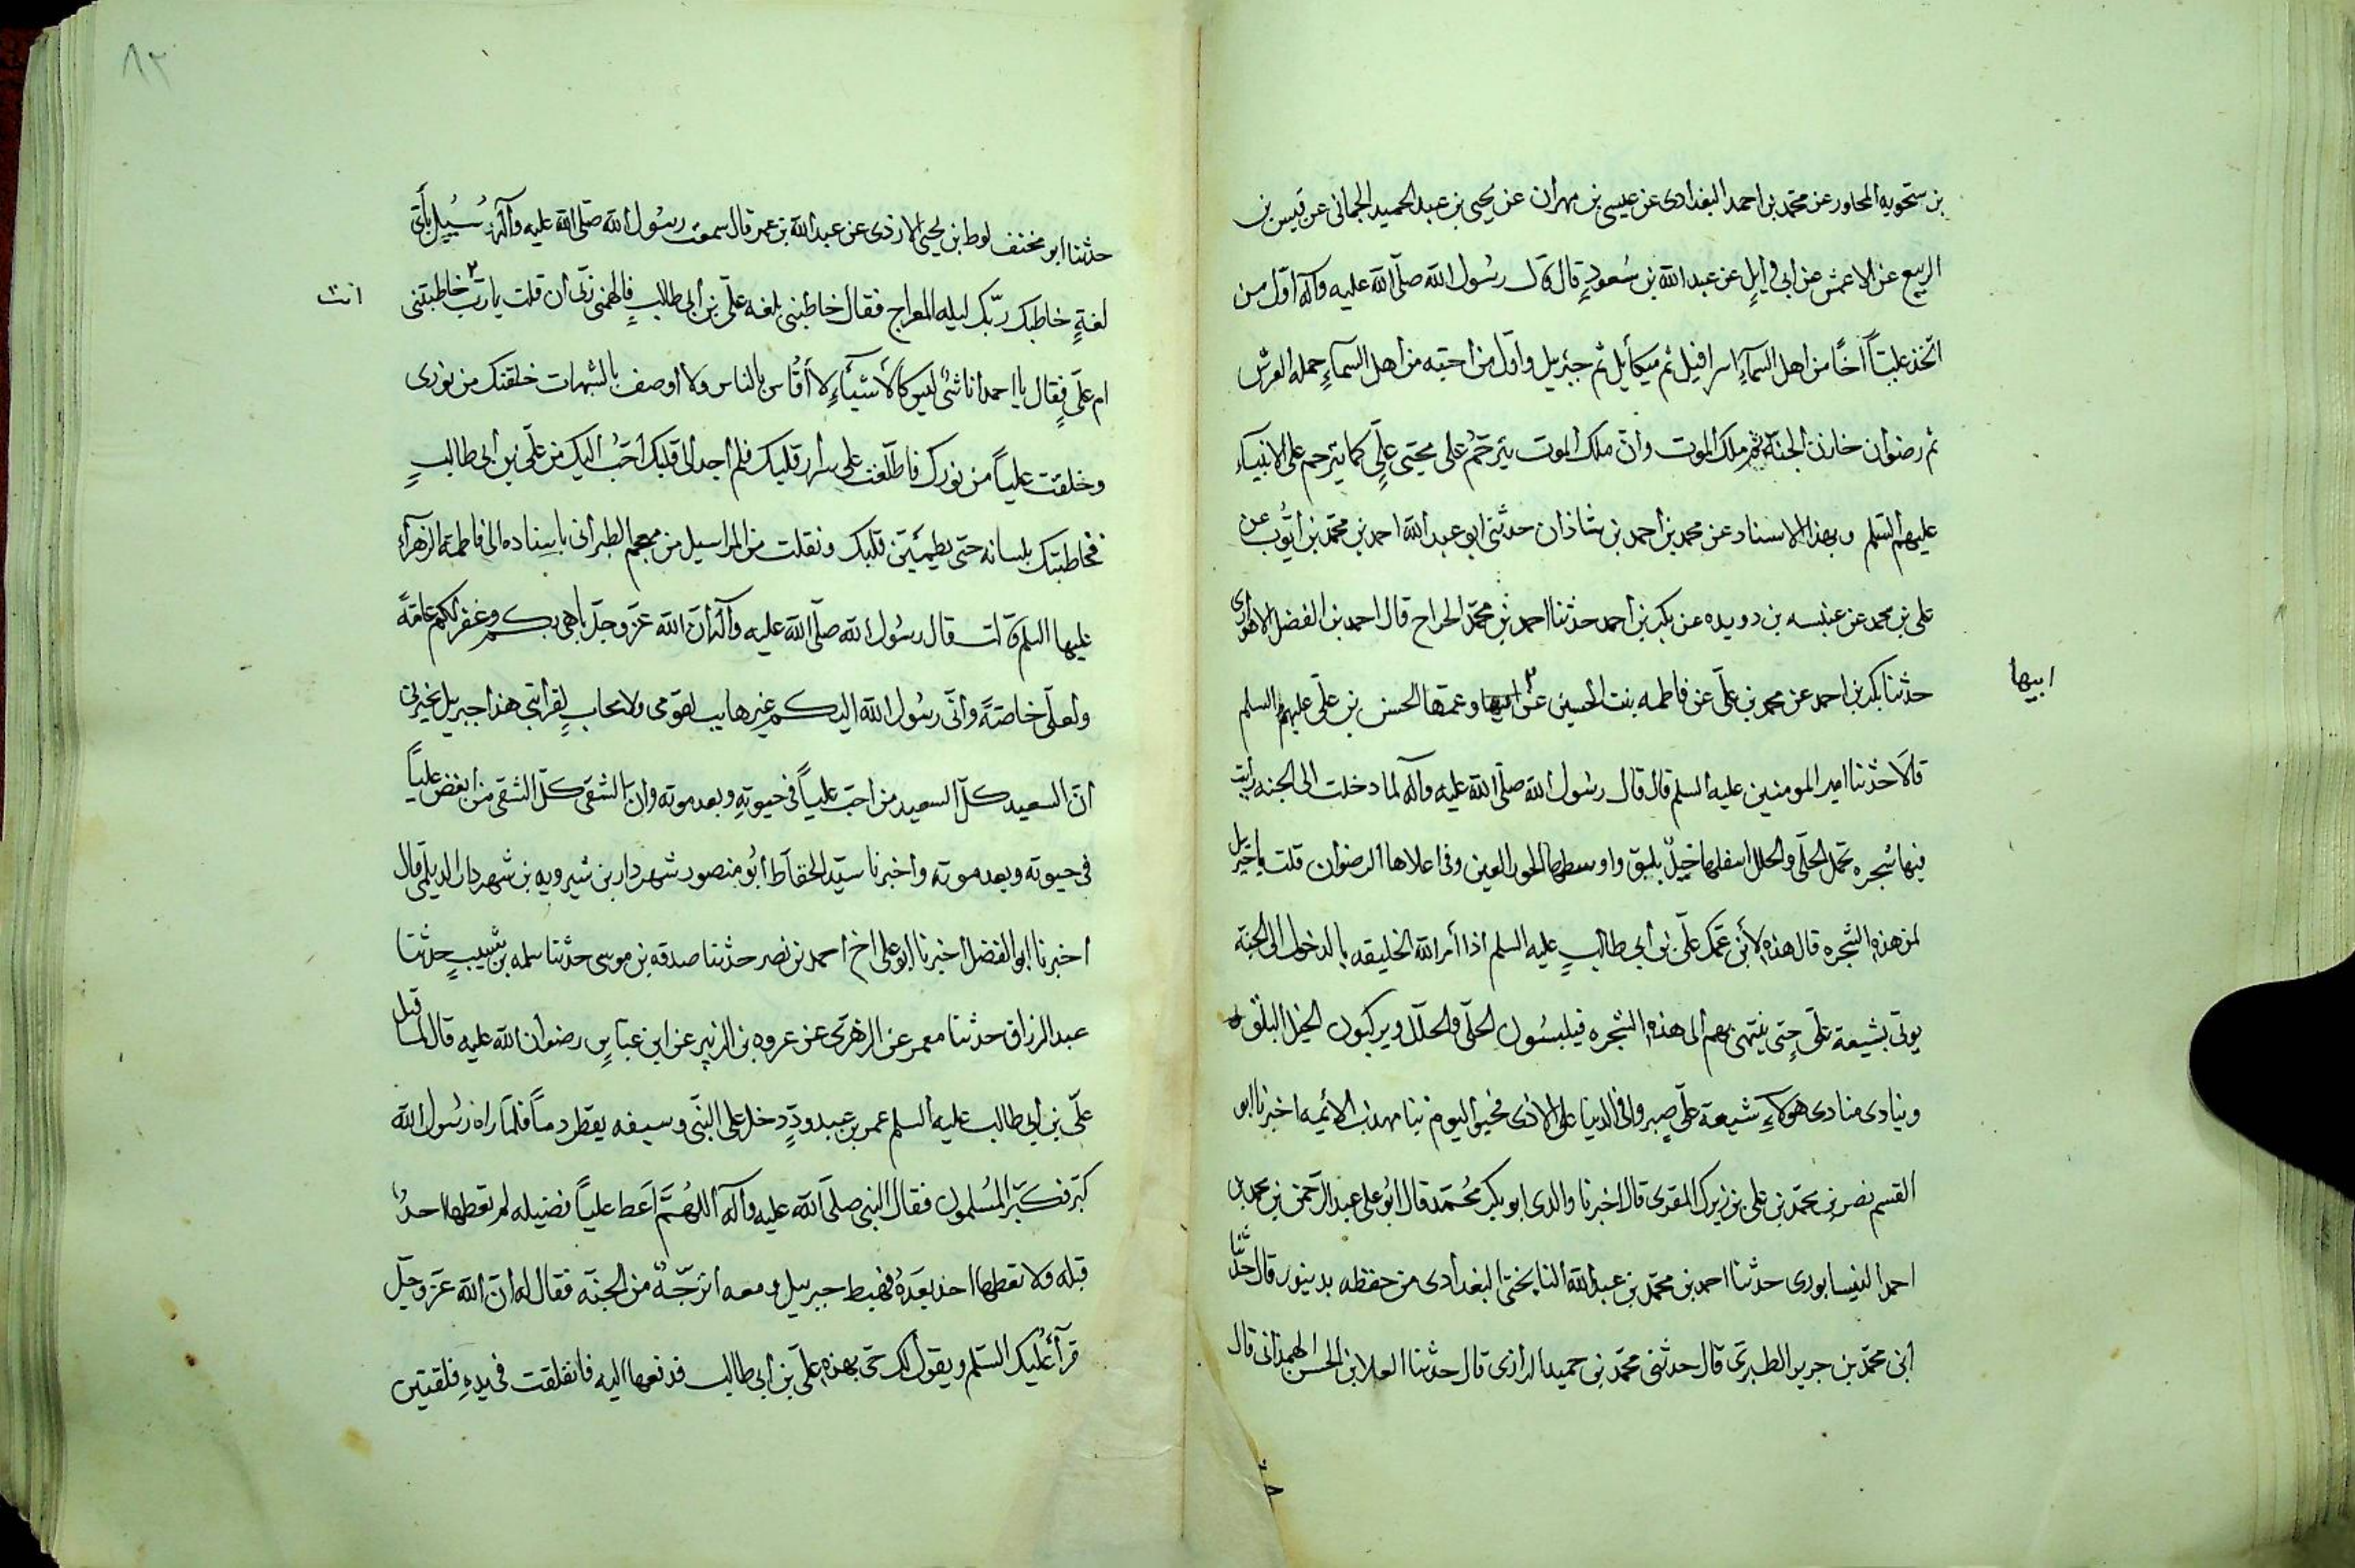 بن ستحويه المجاور عن محمد بن احمد البغدادى عن عيسى بن مهران عن يحيى بن عبد الحميد الجمانى عن قيس بن
الربيع عن الاعمش عن ابى وايلٍ عن عبد الله بن سُعودٍ قال قال رسُول الله صلّى الله عليه وآله اوّل من
اتّخذ عليّاً اخًا من اهل السمآءِ اسرافيل ثم ميكأيل ثم جبرئيل واوّل من احبّه من اهل السمآءِ حمله العرش
ثم رضوان خازن الجنّة ثم ملك الموت وانّ ملك الموت يترحّمُ على محبّى علّيٍ كما يترحم على الانبيآء
عليهم السّلم وبهذا الاسناد عن محمد بن احمد بن شاذان حدثنى ابو عبد الله احمد بن محمّد بن ايّوب عن
على بن محمد عن عنبسه بن دويده عن بكر بن احمد حدثنا احمد بن محمّد الجراح قال احمد بن الفضل الاهوازى
حدثنا بكر بن احمد عن محمد بن علىّ عن فاطمه بنت الحسين عن ابيها وعمّها الحسن بن علىّ عليهم السلم
ابيها
قالا حدّثنا امير المومنين عليه السلم قال قال رسُول الله صلّى الله عليه وآله لما دخلت الى الجنه رايت
فيها شجره تحمل الحلّى والحلل اسفلها خيلٌ بلق واوسطها الحور العين وفى اعلاها الرضوان قلت يا جبريل
لمن هذه الشجره قال هذه لأبن عمّك علّى بن أبي طالبٍ عليه السلم اذا أمر الله الخليقه بالدخول الى الجنة
يوتى بشيعة علّىٍ حتى ينتهى بهم الى هذه الشجره فيلبسُون الحلّى والحلل ويركبون الخيل البلق
وينادى منادى هولآءِ شيعة علىّ صبروا فى الدنيا على الاذى فحيوا اليوم نبا مهذب الائمه اخبرنا ابو
القسم نصر بن محمّد بن على بن زيرك المقرى قال اخبرنا والدى ابو بكر محُمّد قال ابُو على عبد الرّحمن بن محمد بن
احمد النيسابورى حدثنا احمد بن محمّد بن عبد الله النايحتى البغدادى من حفظه بدينور قال حدّثنا
ابن محمّد بن جرير الطبرى قال حدثنى محمّد بن حميد الرازى قال حدثنا العلا بن الحسن الهمدانى قال
٨٢
حدثنا ابو مخنف لوط بن يحيى الازدى عن عبد الله بن عمر قال سمعت رسُول الله صلّى الله عليه وآله وسُيل بأىّ
لغةٍ خاطبك ربّك ليله المعراج فقال خاطبنى بلغه علّى بن ابى طالبٍ فالهمنى ربّى ان قلت يا ربّ خاطبتنى
انت
ام علّى فقال يا احمد انا شئ ليس كالأشيآءِ لا أُقاس بالناس ولا أوصف بالشبهات خلقتك من نورى
وخلقت علياً من نورك فاطّلعت على سرار قلبك فلم اجد الى قلبك احبُ اليك من علّى بن ابى طالبٍ
فخاطبتك بلسانه حتى يطمئنّ قلبك ونقلت من المراسيل من معجم الطبرانى باسناده الى فاطمه الزهرآء
عليها السلم قالت قال رسُول الله صلّى الله عليه وآله انّ الله عزّ وجلّ باهى بكم وغفر لكم عامّةً
ولعلّى خاصّةً وانّى رسُول الله اليكم غير هايب لقومى ولا محابٍ لقرابتى هذا جبريل يخبرنى
انّ السعيد كلّ السعيد من احبّ علياً فى حيوتهِ وبعد موته وانّ الشقى كلّ الشقى من ابغض علياً
فى حيوته وبعد موته واخبرنا سيّد الحفّاظ ابُو منصور شهردار بن شيرويه بن شهردار الديلمى قال
اخبرنا ابو الفضل اخبرنا ابو على اخ احمد بن نصر حدثنا صدقه بن موسى حدثنا سلمه بن شبيبٍ حدثنا
عبد الرزاق حدثنا معمر عن الزهرى عن عروه بن الزبير عن ابن عبّاسٍ رضوان الله عليه قال لما قتل
علّى بن ابى طالب عليه السلم عمر بن عبدودٍّ دخل على النبّى وسيفه يقطر دماً فلمّا راه رسُول الله
كبّر فكبّر المُسلمون فقال النبى صلّى الله عليه وآله اللهُمّ اعَط علياً فضيله لم تعطها احدُ
قبله ولا تعطها احد بعَدهُ فهبط جبرييل ومعه اترجّةٌ من الجنّة فقال له انّ الله عزّ وجلّ
قرأ عليك السّلم ويقول لك حىّ بهذه علّى بن ابى طالب فدفعها اليه فانفلقت فى يدهِ فلقتين